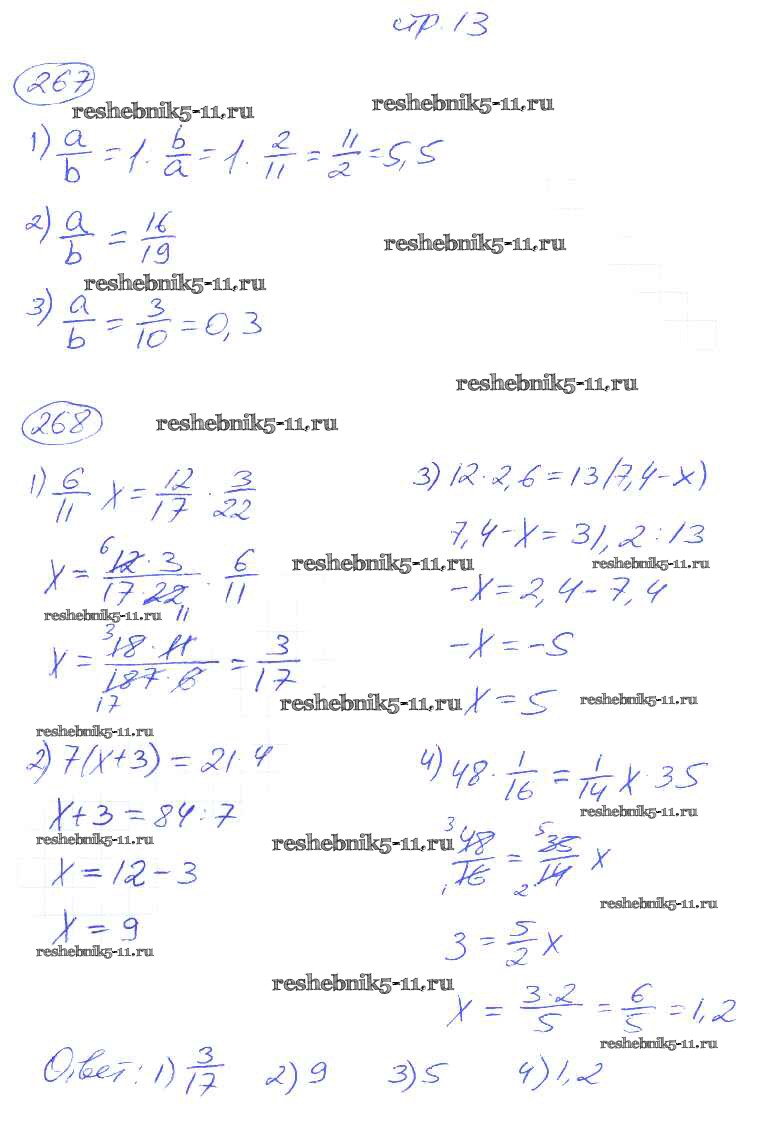 стр. 13
267
reshebnik5-11.ru reshebnik5-11.ru
1) a/b = 1 · b/a = 1 · 2/11 = 11/2 = 5,5
2) a/b = 16/19
reshebnik5-11.ru
reshebnik5-11.ru
3) a/b = 3/10 = 0,3
reshebnik5-11.ru
268 reshebnik5-11.ru
1) 6/11 x = 12/17 · 3/22
x = 12·3/17·22 · 6/11
6
11
reshebnik5-11.ru
reshebnik5-11.ru
x = 18·11/187·6 = 3/17
3
17
reshebnik5-11.ru
reshebnik5-11.ru
2) 7(x+3) = 21·4
x+3 = 84:7
reshebnik5-11.ru
reshebnik5-11.ru
x = 12-3
x = 9
reshebnik5-11.ru
reshebnik5-11.ru
3) 12·2,6 = 13(7,4-x)
7,4-x = 31,2:13
reshebnik5-11.ru
-x = 2,4-7,4
-x = -5
x = 5
reshebnik5-11.ru
4) 48·1/16 = 1/14 x·35
reshebnik5-11.ru
3 5
48/16 = 35/14 x
1 2
reshebnik5-11.ru
3 = 5/2 x
x = 3·2/5 = 6/5 = 1,2
reshebnik5-11.ru
Ответ: 1) 3/17 2) 9 3) 5 4) 1,2